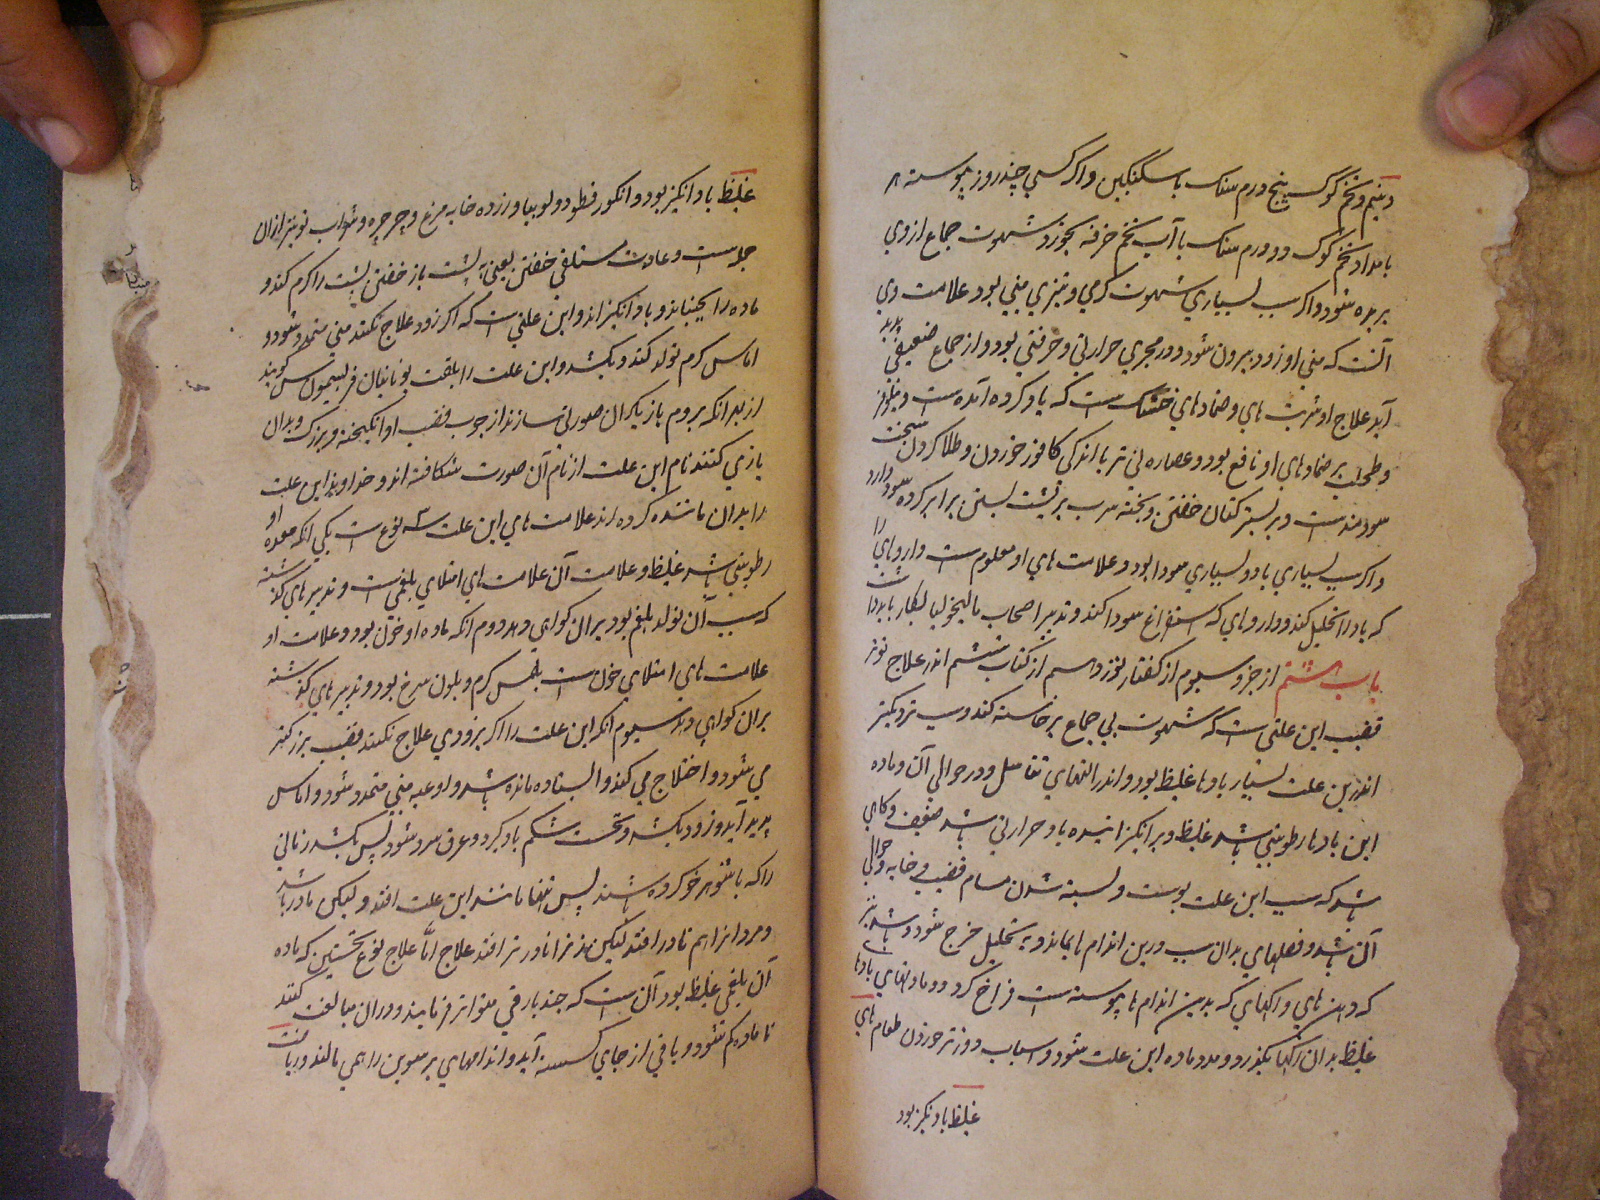 درم و تخم کوک پنج درم سنک با سکنکبین و اکر کسی چند روز پیوسته هر
بامداد تخم کوک دو درم سنک با آب تخم خرفه بخورد شهوت جماع از وی
بریده شود و اکر سبب بسیاری شهوت کرمی و تیزی منی بود علامت وی
آنست که منی او زود بیرون شود و در مجری حرارتی و حرقتی بود و از جماع ضعیفی پدید
آید علاج او شربت های و ضمادهای خنک است که یاد کرده آمده است و نیلوفر
و طحلب بر ضمادهای او نافع بود و عصاره نی تر با اندکی کافور خوردن و طلا کردن سخت
سودمندست و بر بستر کتان خفتن و تخته سرب بر پشت بستن برابر کرده سود دارد
و اکر سبب بسیاری باد و بسیاری سودا بود و علامت های او معلوم است داروهای را
که باد را تحلیل کند و داروهای که استفراغ سودا کند و تدبیر اصحاب مالیخولیا بکار باید داشت
باب هشتم از جزو سیوم از کفتار نوزدهم از کتاب ششم اندر علاج توتر
قضیب این علتی است که شهوت بی جماع برخاسته کند و سبب نزدیکتر
اندرین علت بسیار بادها غلیظ بود و اندر التهای تناسل و در حوالی آن و ماده
این بادها رطوبتی باشد غلیظ و برانکیزاننده باد حرارتی باشد ضعیف و کاهی
باشد که سبب این علت پوست و بسته شدن مسام قضیب و خایه و حوالی
آن باشد و فضلهای بدان سبب درین اندام ها بماند و به تحلیل خرج نشود و باشد نیز
که دهن های رکهای که بدین اندام ها پیوسته است فراخ کردد و مادتهای بادها
غلیظ بدان رکها بکذرد و مدد ماده این علت شود و اسباب دورتر خوردن طعام های
غلیظ باد انکیز بود
غلیظ باد انکیز بود و انکور قطود و لوبیا و زرده خایه مرغ و جرجیر و شراب نو بتر ازان
جمله است و عادت مستلقی خفتن یعنی به پشت باز خفتن پشت را کرم کند و
ماده را بجنباند و باد انکیزاند و این علتی است که اکر زود علاج نکنند منی متمدد شود و
اماس کرم تولد کند و بکشد و این علت را بلغت یونانیان فریسیموس کویند
از بهر انکه بروم بازیکران صورتی سازند از چوب قضیب او انکیخته و بزرک و بدان
بازی کنند نام این علت از نام آن صورت شکافته اند و خداوند این علت
را بدان ماننده کرده اند علامت های این علت سه نوع است یکی انکه ماده او
رطوبتی باشد غلیظ و علامت آن علامت های امتلای بلغمی است و تدبیر های کذشته
که سبب آن تولد بلغم بود بران کواهی دهد دوم انکه ماده او خون بود و علامت او
علامت های امتلای خون است بلمس کرم و بلون سرخ بود و تدبیر های کذشته
بران کواهی دهد سیوم انکه این علت را اکر بزودی علاج نکنند قضیب بزرکتر
می شود و اختلاج می کند و ایستاده مانده باشد و اوعیه منی متمدد شود و اماس
پدید آید و زود بکشد و تحت شکم باد کیرد و عرق سرد شود پس بکشد زنانی
را که با شوهر خو کرده باشند پس تنها مانند این علت افتد و لیکن نادر باشد
و مردانرا هم نادر افتد لیکن زنانرا نادرتر افتد علاج امّا علاج نوع نخستین که ماده
آن بلغمی غلیظ بود آن است که چند بار قی متواتر فرمایند و دران مبالغت کنند
تا ماده کم شود و باقی از جای کسسته آید و اندامهای برسوین را همی مالند و ریاضت